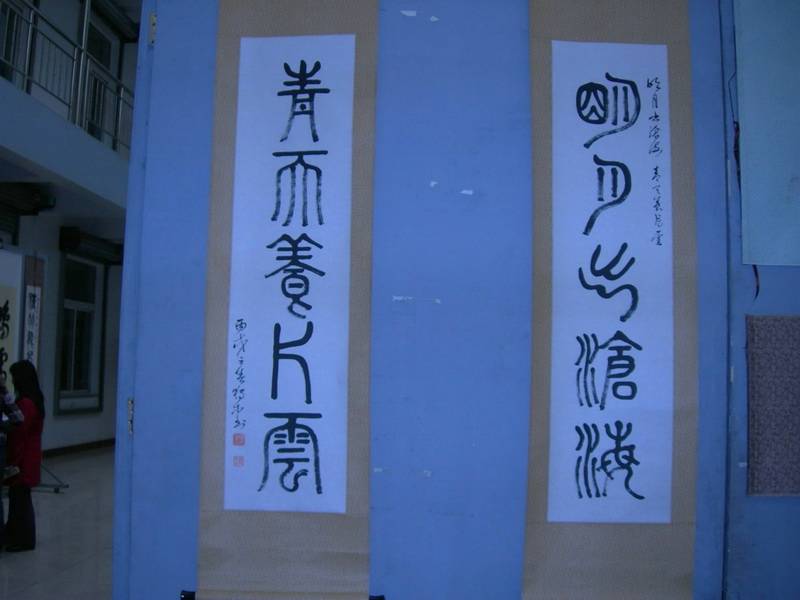 明月出滄海
明月出滄海 青天養片雲
青天養片雲
丙戌之春